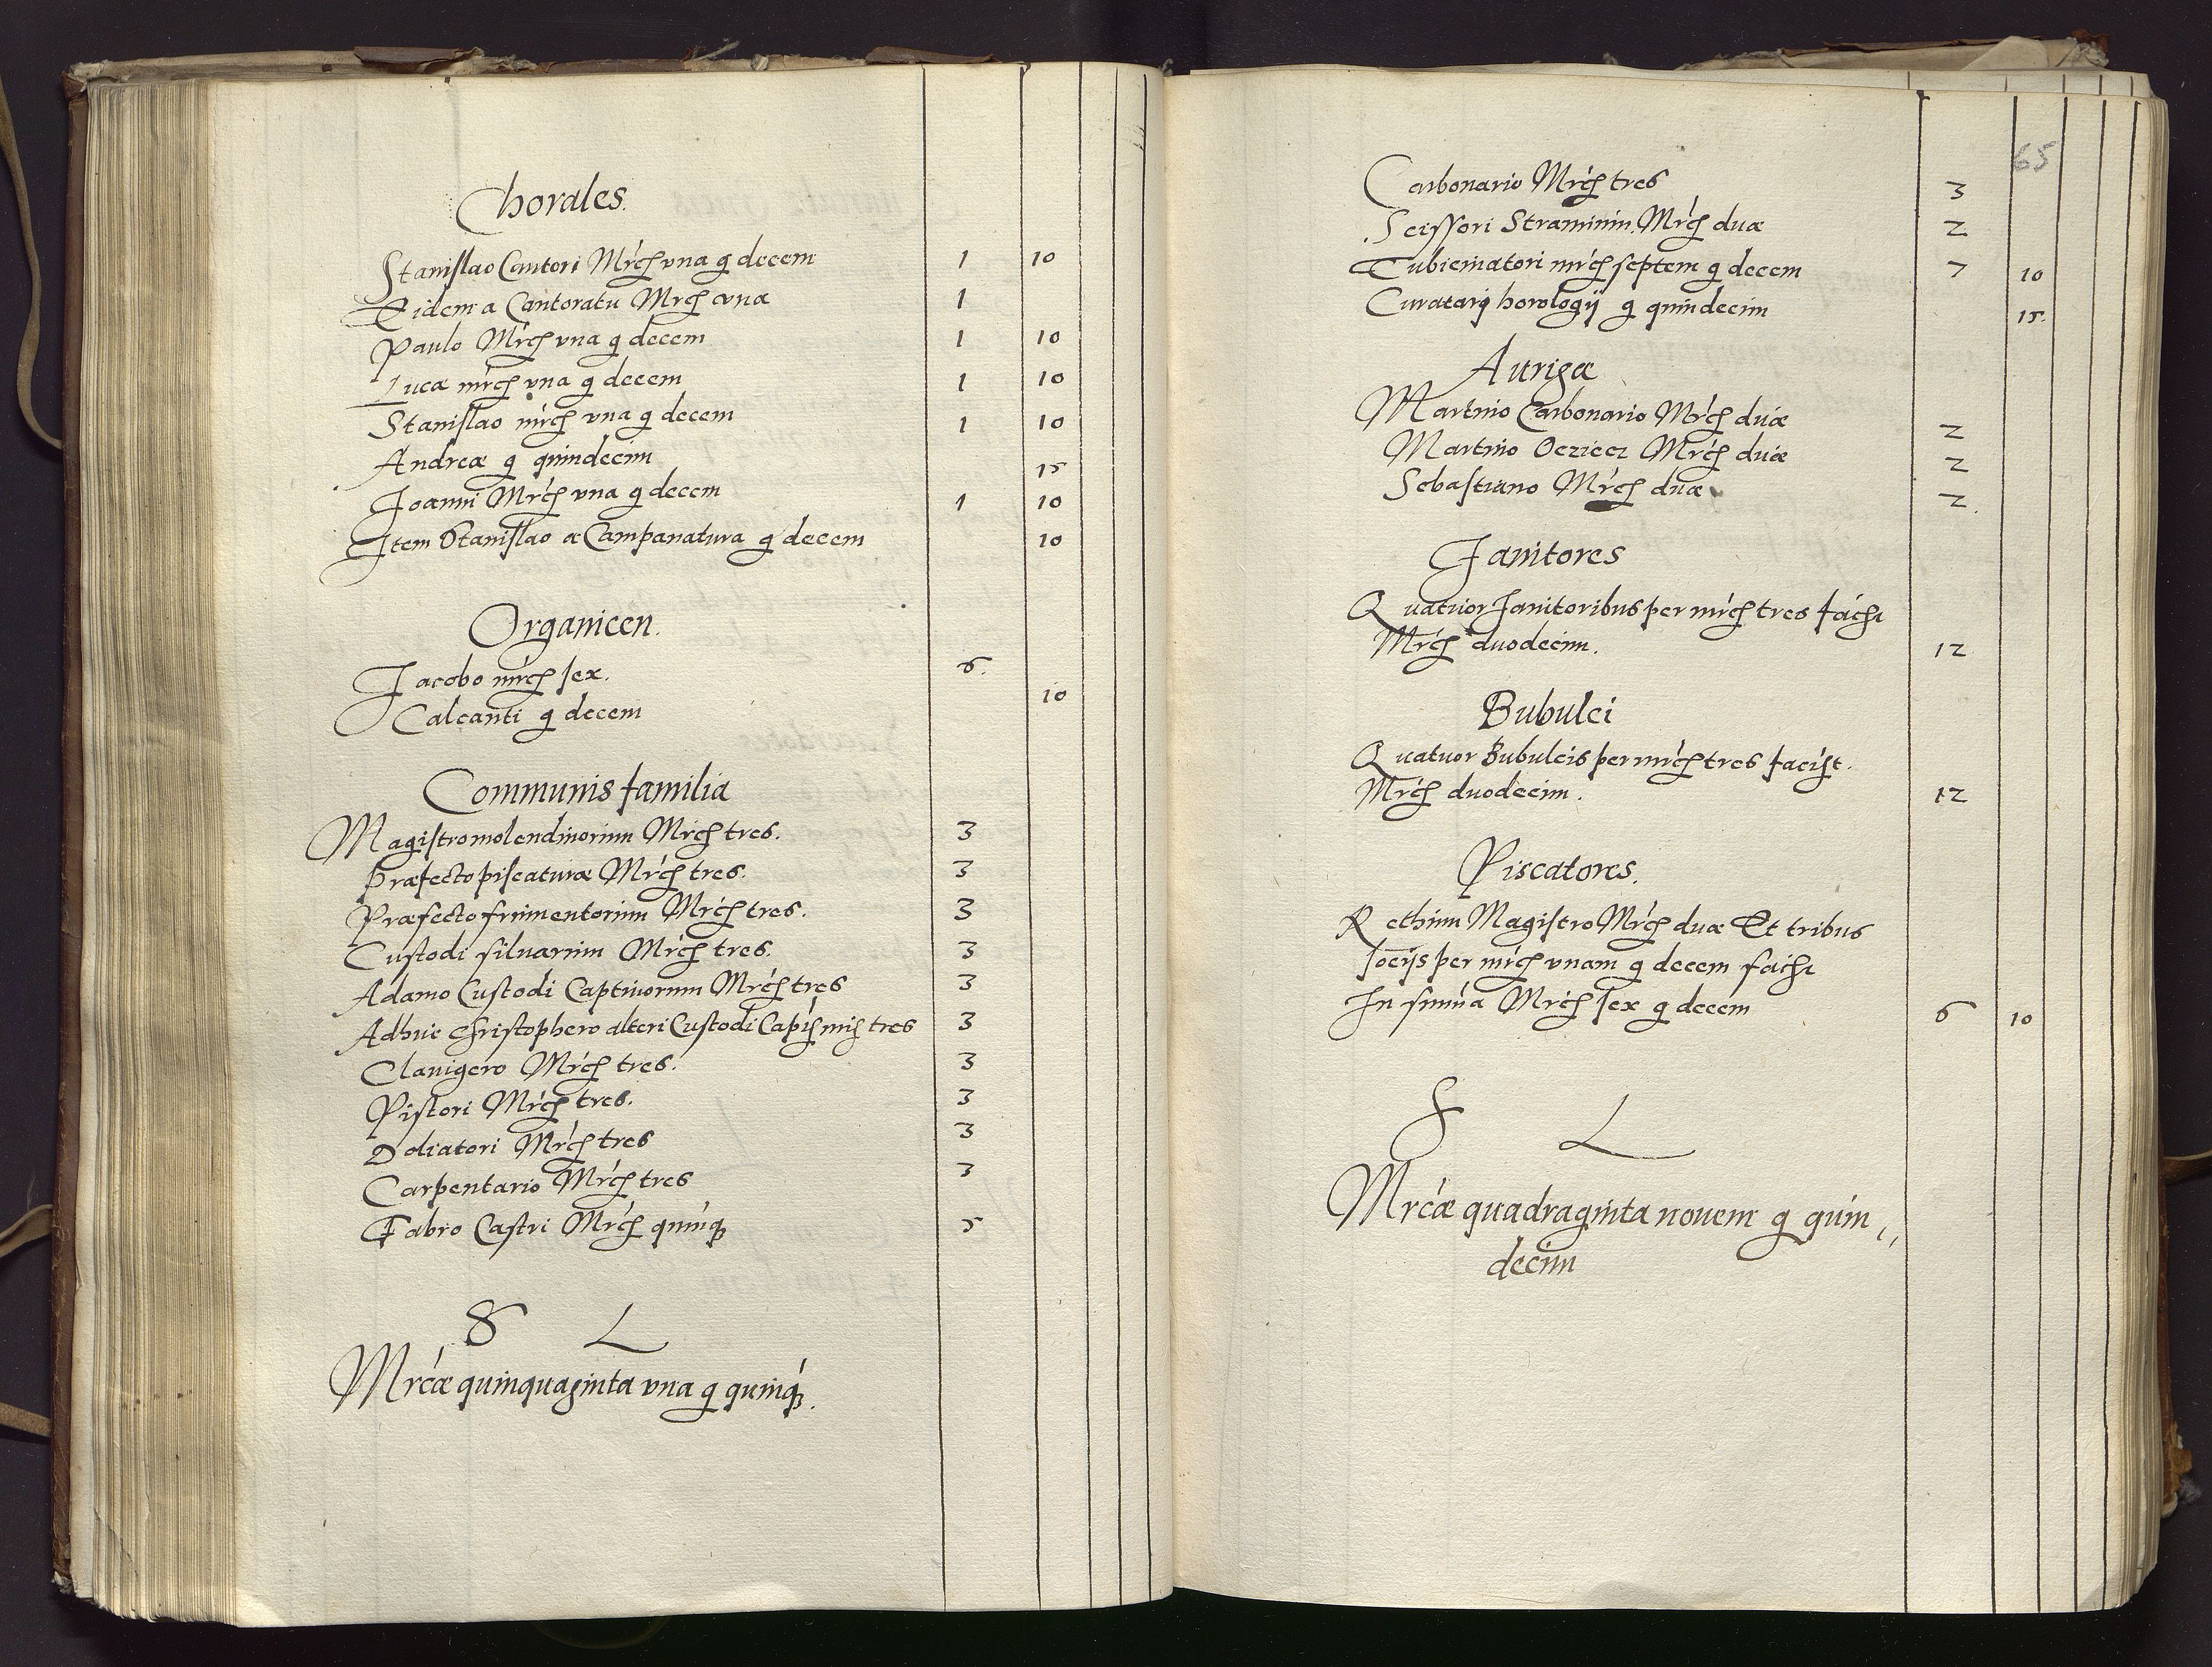 Chorales.
Stanislao Cantori Mrch vna g decem 1 10
Eidem a Cantoratu Mrch vna 1
Paulo Mrch vna g decem 1 10
Lucæ mrch vna g decem 1 10
Stanislao mrch vna g decem 1 10
Andreæ g quindecim 15
Joanni Mrch vna g decem 1 10
Item Stanislao a Campanatura g decem 10
Organicen.
Jacobo mrch sex. 6.
Calcanti g decem 10
Communis familia
Magistro molendinorum Mrch tres. 3
Præfecto piscaturæ Mrch tres. 3
Præfecto frumentorum Mrch tres. 3
Custodi siluarum Mrch tres. 3
Adamo Custodi Captiuorum Mrch tres 3
Adhuc Christophero alteri Custodi tres 3
Clauigero Mrch tres. 3
Pistori Mrch tres. 3
Doliatori Mrch tres 3
Carpentario Mrch tres 3
Fabro Castri Mrch quinq 5
S L
Mrcæ quinquaginta vna g quinq.
65
Carbonario Mrch tres 3
Scissori Straminum Mrch duæ 2
Tubicinatori mrch septem g decem 7 10
horologij g quindecim 15.
Aurigæ
Martino Carbonario Mrch duæ 2
Martino Oczicez Mrch duæ 2
Sebastiano Mrch duæ 2.
Janitores
Quatuor Janitoribus per mrch tres
Mrch duodecim. 12
Bubulci
Quatuor Bubulcis per mrch tres
Mrch duodecim. 12
Piscatores.
Rethium Magistro Mrch duæ Et tribus
socijs per mrch vnam g decem
In summa Mrch sex g decem 6 10
S L
Mrcæ quadraginta nouem g quin,,
decim